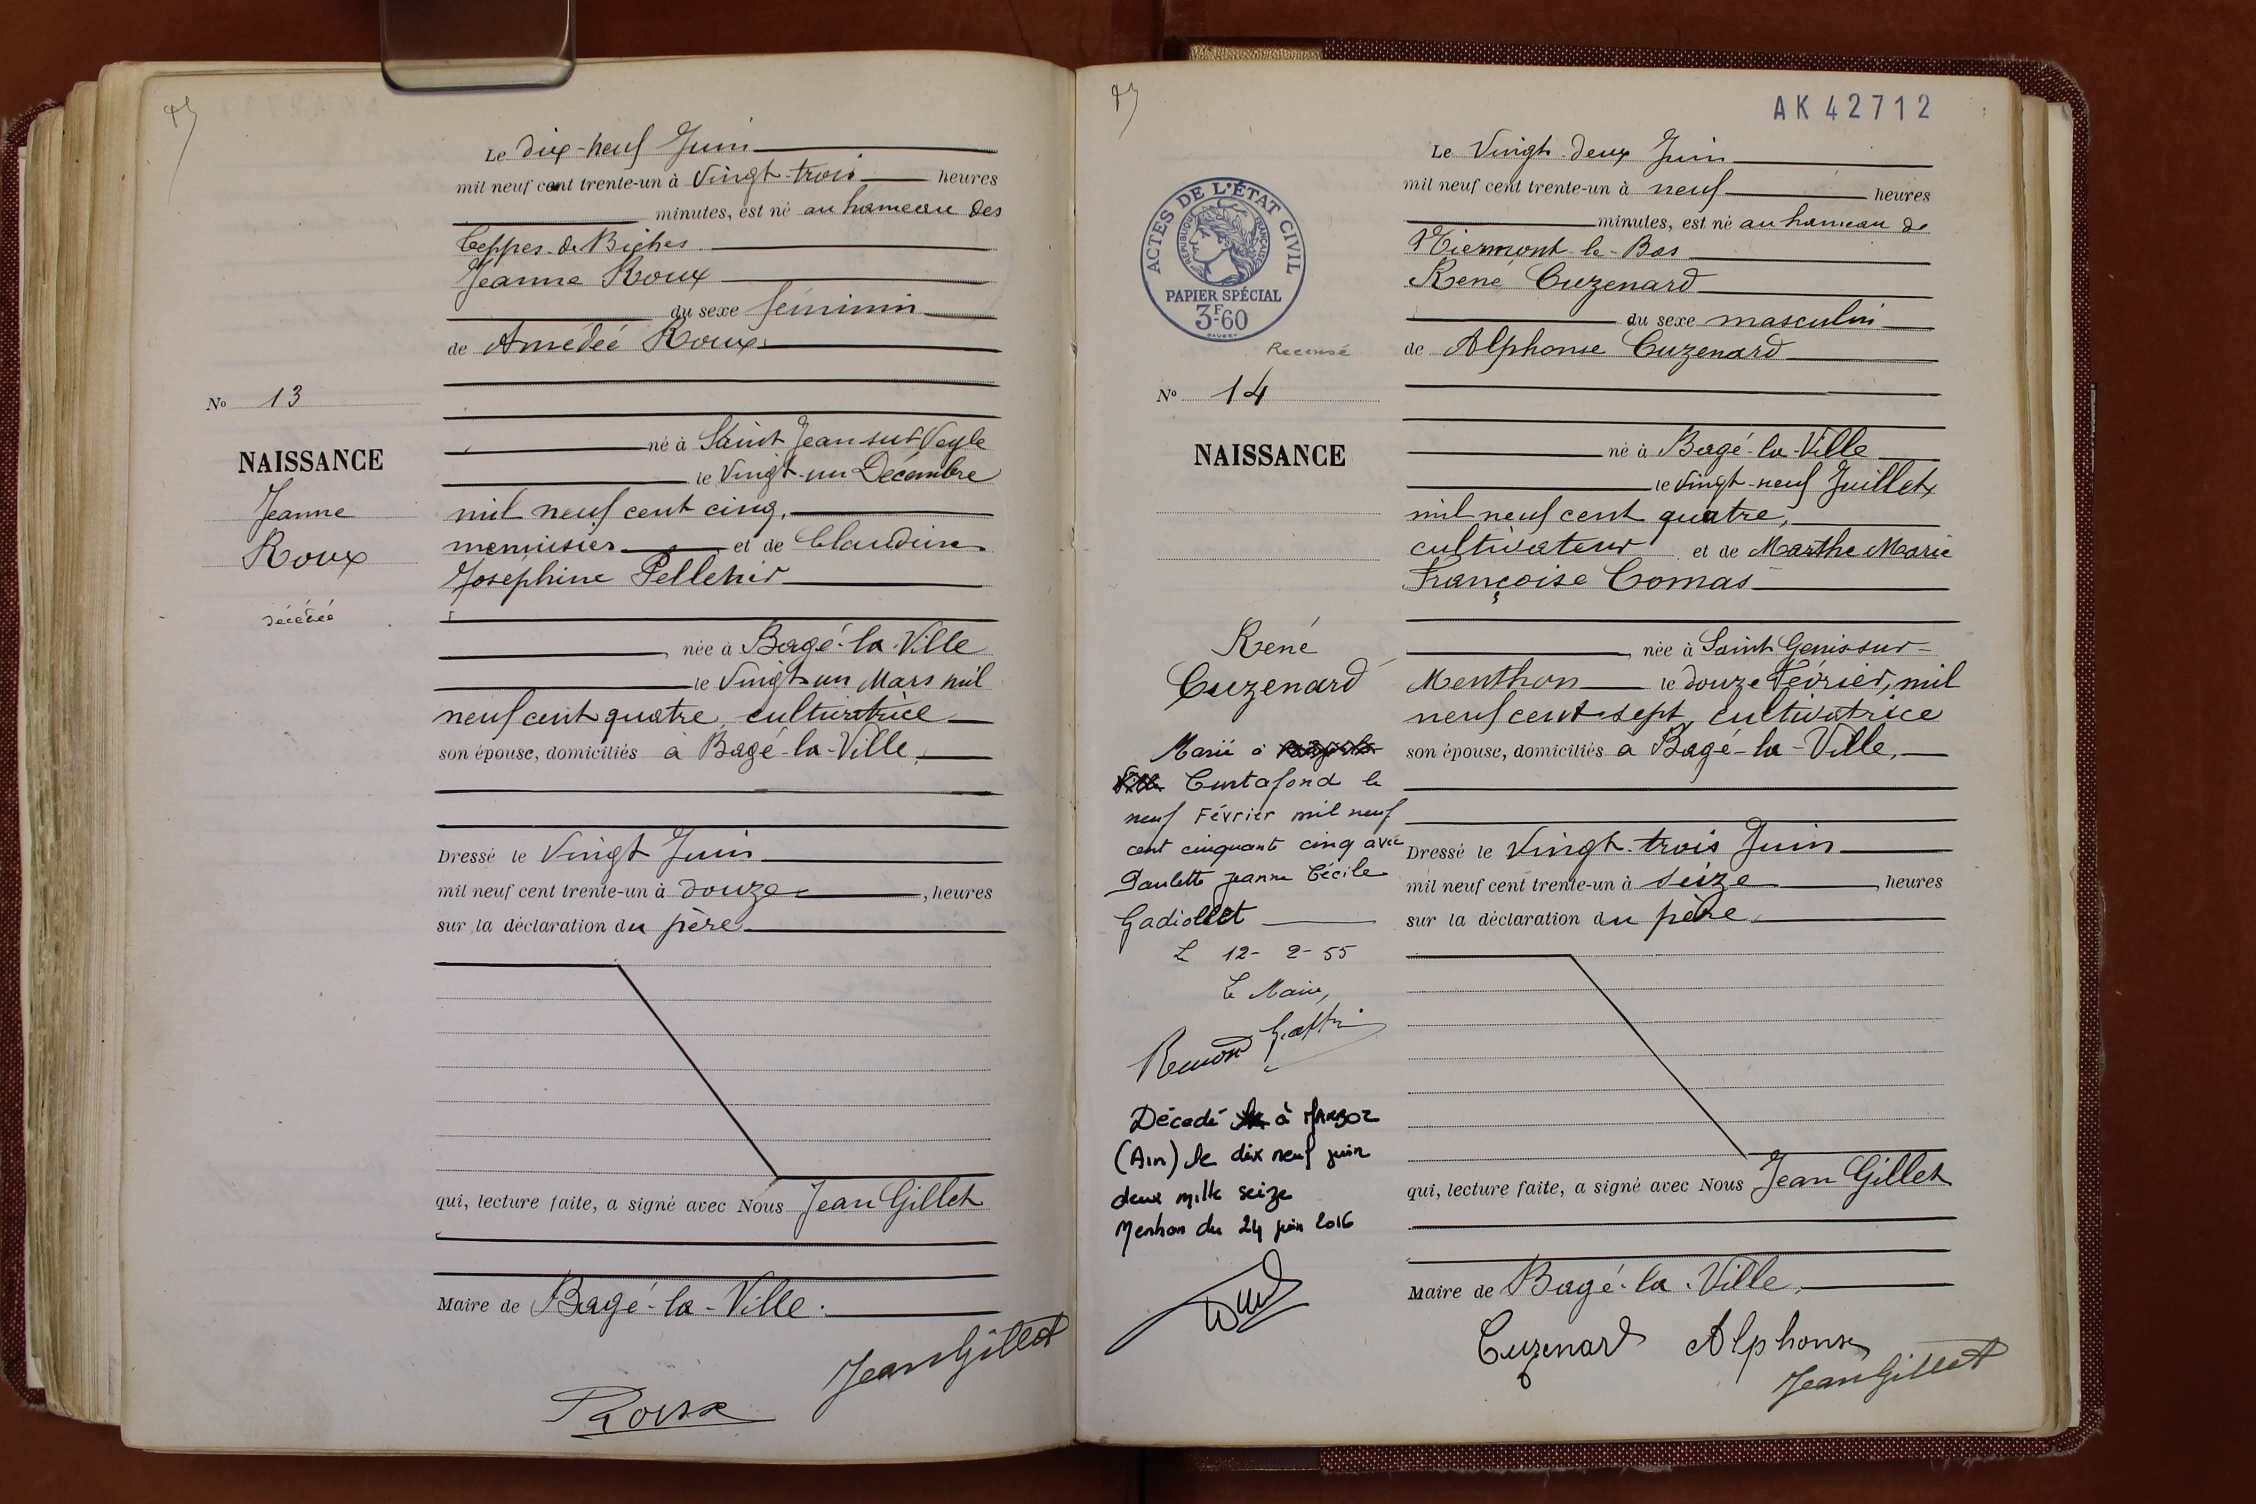 Le dix-neuf Juin
mil neuf cent trente-un à Vingt-trois heures
minutes, est né au hameau des
Ceppes de Biches
Jeanne Roux
du sexe féminin
de Amédée Roux
né à Saint Jean sur Veyle
le Vingt-un Décembre
mil neuf cent cinq,
menuisier et de Claudine
Joséphine Pelletier
née à Bagé-la-Ville
le Vingt un Mars mil
neuf cent quatre, cultivatrice
son épouse, domiciliés à Bagé-la-Ville,
Dressé le Vingt Juin
mil neuf cent trente-un à douze, heures
sur la déclaration du père
qui, lecture faite, a signé avec Nous Jean Gillet
Maire de Bagé-la-Ville.
Jean Gillet
Roux
No 13
NAISSANCE
Jeanne
Roux
décédée
AK 42712
ACTES DE L'ÉTAT CIVIL
RÉPUBLIQUE FRANÇAISE
PAPIER SPÉCIAL
3F-60
Recensé
No 14
NAISSANCE
René
Cuzenard
Marié à
Curtafond le
neuf Février mil neuf
cent cinquante cinq avec
Paulette Jeanne Cécile
Gadiollet
Le 12-2-55
Le Maire,
Décédé à
(Ain) le dix neuf juin
deux mille seize
Mention du 24 juin 2016
Le Vingt-deux Juin
mil neuf cent trente-un à neuf heures
minutes, est né au hameau de
-le-Bas
René Cuzenard
du sexe masculin
de Alphonse Cuzenard
né à Bagé-la-Ville
le vingt-neuf Juillet
mil neuf cent quatre,
cultivateur et de Marthe Marie
Françoise Comas
née à Saint Genis sur-
Menthon le douze Février, mil
neuf cent sept, cultivatrice
son épouse, domiciliés à Bagé-la-Ville,
Dressé le Vingt-trois Juin
mil neuf cent trente-un à seize, heures
sur la déclaration du père,
qui, lecture faite, a signé avec Nous Jean Gillet
Maire de Bagé-la-Ville,
Cuzenard Alphonse
Jean Gillet